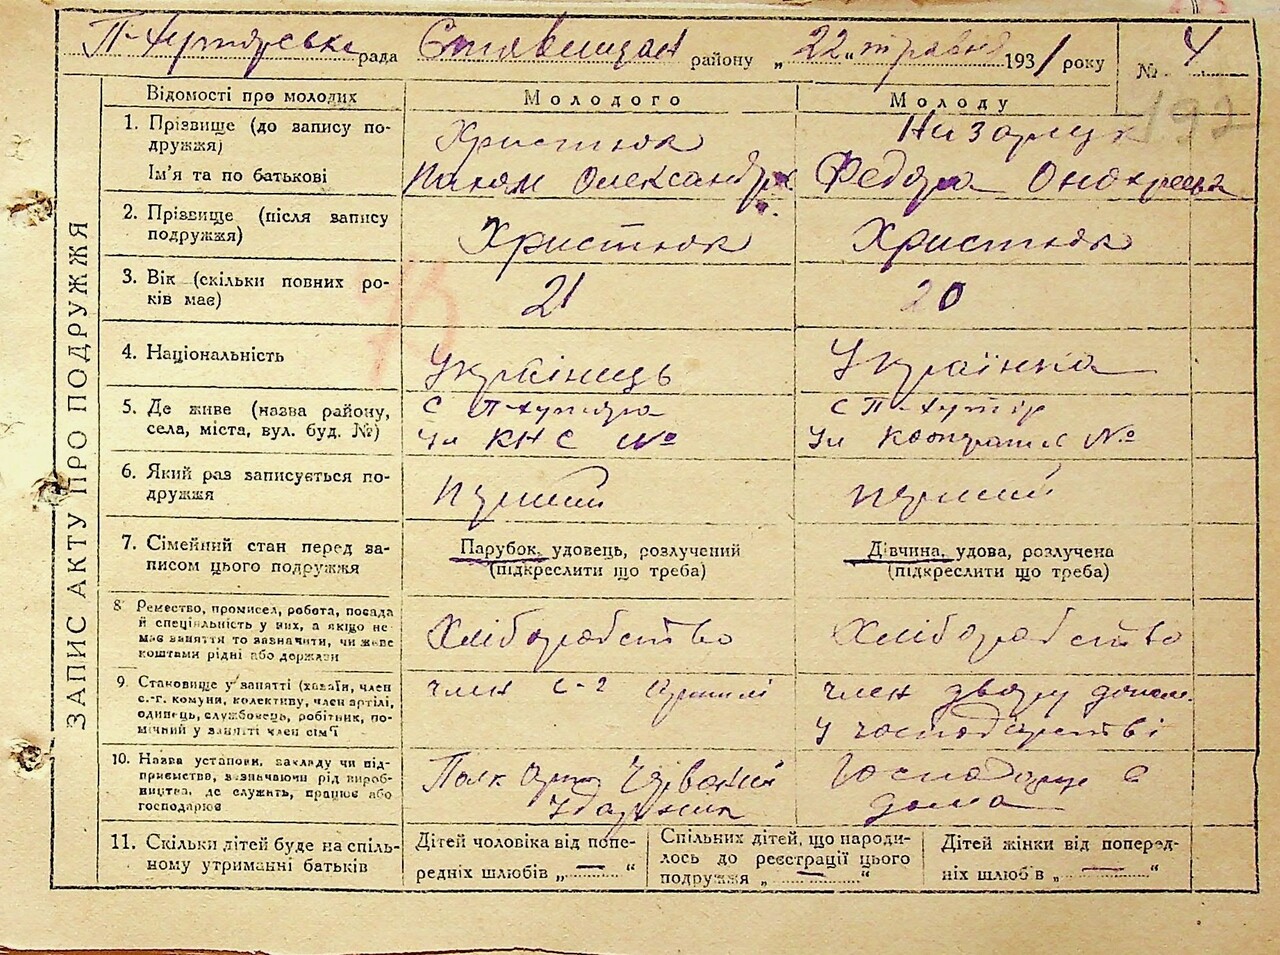 П-Хуторська рада Ставищан району „22“ травня 1931 року № 4
192
ЗАПИС АКТУ ПРО ПОДРУЖЖЯ
Відомості про молодих
Молодого
Молоду
1. Прізвище (до запису по-
дружжя)
Христюк
Ім'я та по батькові
Олександр
Федора
2. Прізвище (після запису
подружжя)
Христюк
Христюк
3. Вік (скільки повних ро-
ків має)
21
20
4. Національність
Українець
Українка
5. Де живе (назва району,
села, міста, вул. буд. №)
с П-Хутора
Ул КНС №
с П-Хутір
Ул Кооператив №
6. Який раз записується по-
дружжя
перший
перший
7. Сімейний стан перед за-
писом цього подружжя
Парубок, удовець, розлучений
(підкреслити що треба)
Дівчина, удова, розлучена
(підкреслити що треба)
8 Ремество, промисел, робота, посада
й спеціяльність у них, а якщо не
має заняття то зазначити, чи живе
коштами рідні або держави
Хліборобство
Хліборобство
9. Становище у занятті (хазяїн, член
с.-г. комуни, колективу, член артілі,
одинець, службовець, робітник, по-
мічний у занятті член сім'ї
член с-г артілі
член двору допом.
у господарстві
10. Назва установи, закладу чи під-
приємства, зазначаючи рід вироб-
ництва, де служить, працює або
господарює
Червоний
Ударник
Господарює в
дома
11. Скільки дітей буде на спіль-
ному утриманні батьків
Дітей чоловіка від попе-
редніх шлюбів „—“
Спільних дітей, що народи-
лось до реєстрації цього
подружжя „—“
Дітей жінки від поперед-
ніх шлюбів „—“